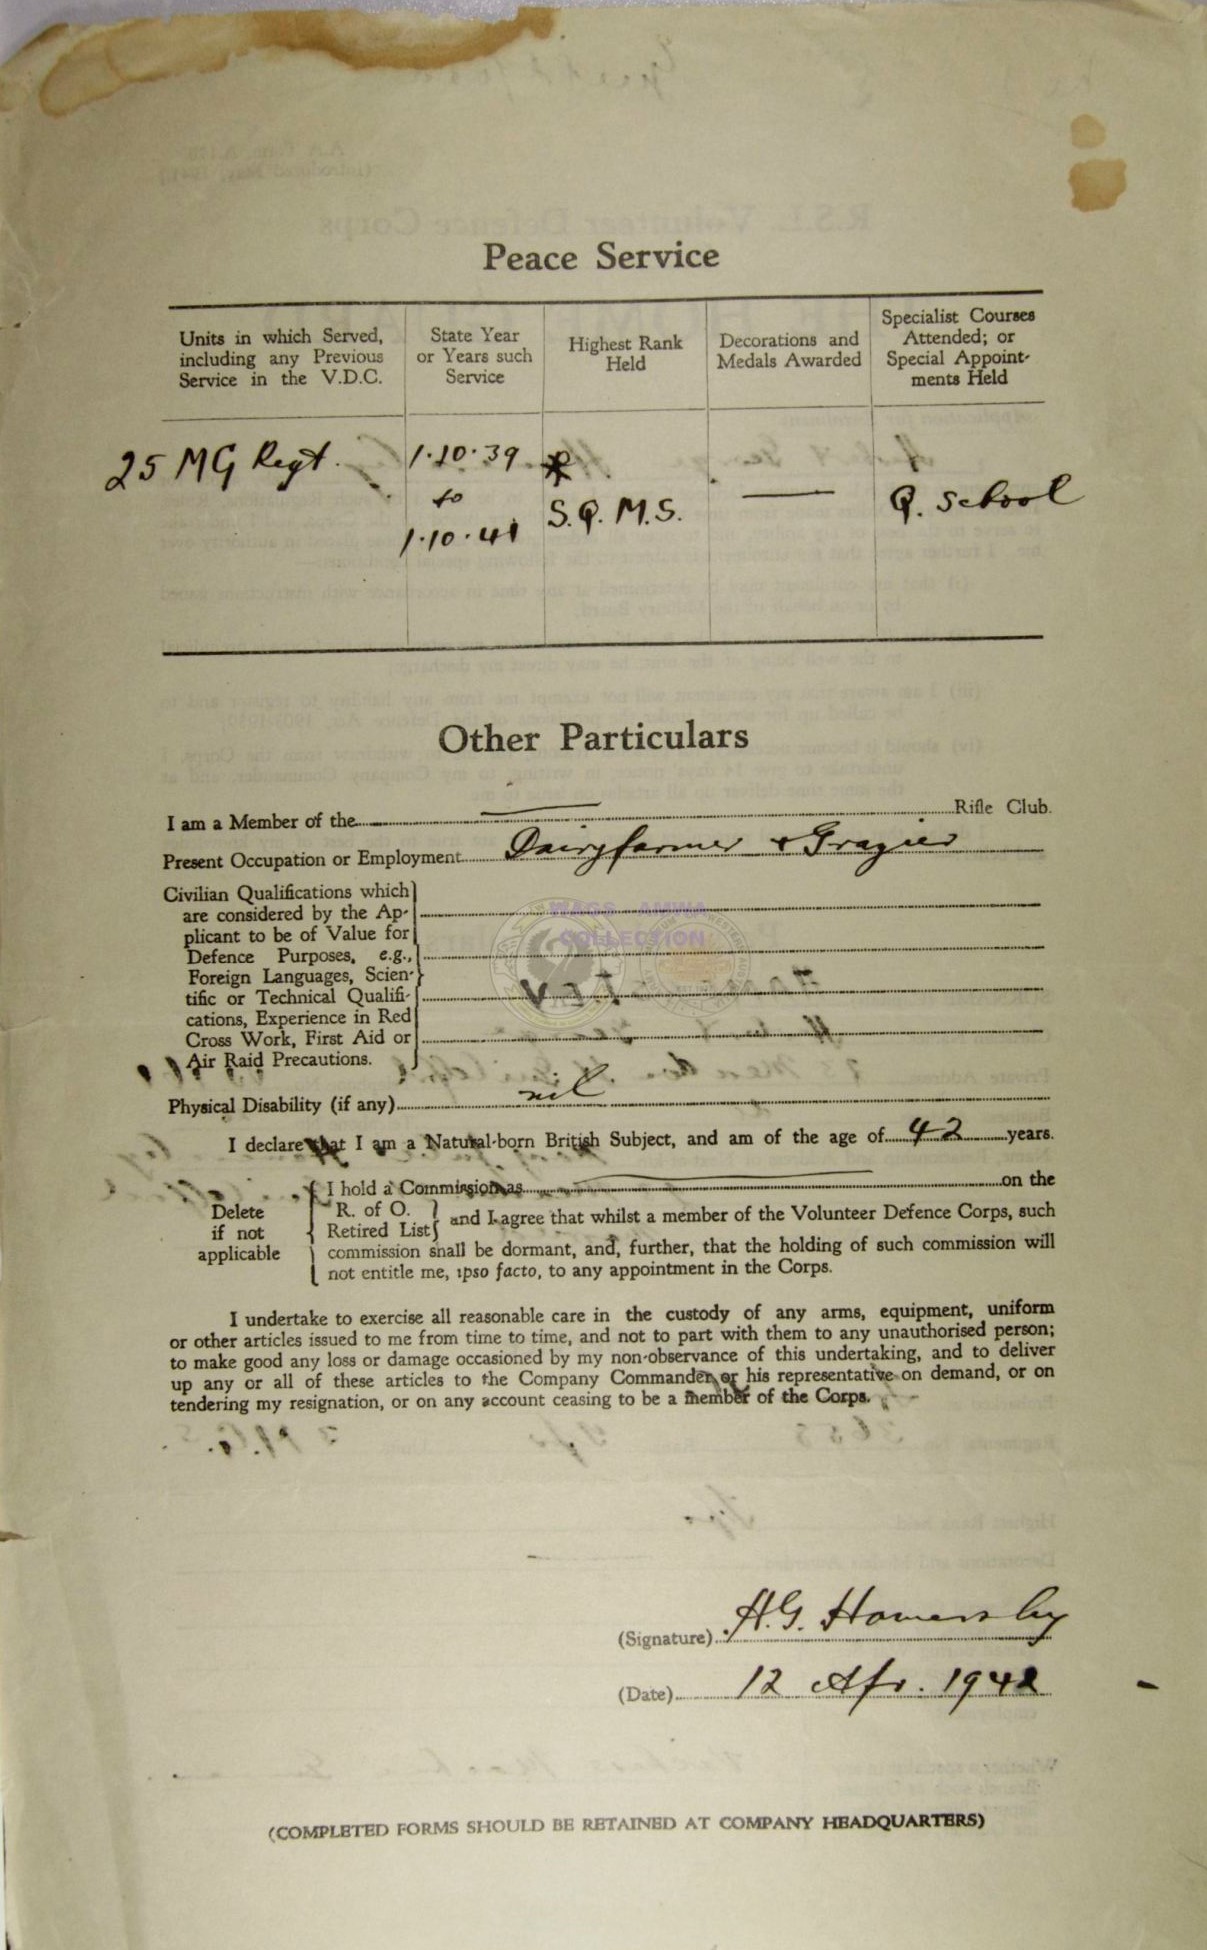 Peace Service
Units in which Served, including any Previous Service in the V.D.C.
State Year or Years such Service
Highest Rank Held
Decorations and Medals Awarded
Specialist Courses Attended; or Special Appoint-ments Held
25 MG Regt.
1.10.39
to
1.10.41
S.Q.M.S.
—
Q. School
Other Particulars
I am a Member of the — Rifle Club.
Present Occupation or Employment Dairyfarmer & Grazier
Civilian Qualifications which
are considered by the Ap-
plicant to be of Value for
Defence Purposes, e.g.,
Foreign Languages, Scien-
tific or Technical Qualifi-
cations, Experience in Red
Cross Work, First Aid or
Air Raid Precautions.
WAGS AMINA
COLLECTION
Physical Disability (if any) nil
I declare that I am a Natural-born British Subject, and am of the age of 42 years.
I hold a Commission as — on the
Delete
if not
applicable
R. of O.
Retired List
and I agree that whilst a member of the Volunteer Defence Corps, such
commission shall be dormant, and, further, that the holding of such commission will
not entitle me, ipso facto, to any appointment in the Corps.
I undertake to exercise all reasonable care in the custody of any arms, equipment, uniform
or other articles issued to me from time to time, and not to part with them to any unauthorised person;
to make good any loss or damage occasioned by my non-observance of this undertaking, and to deliver
up any or all of these articles to the Company Commander or his representative on demand, or on
tendering my resignation, or on any account ceasing to be a member of the Corps.
(Signature) H.G. Homersley
(Date) 12 Apr. 1942
(COMPLETED FORMS SHOULD BE RETAINED AT COMPANY HEADQUARTERS)